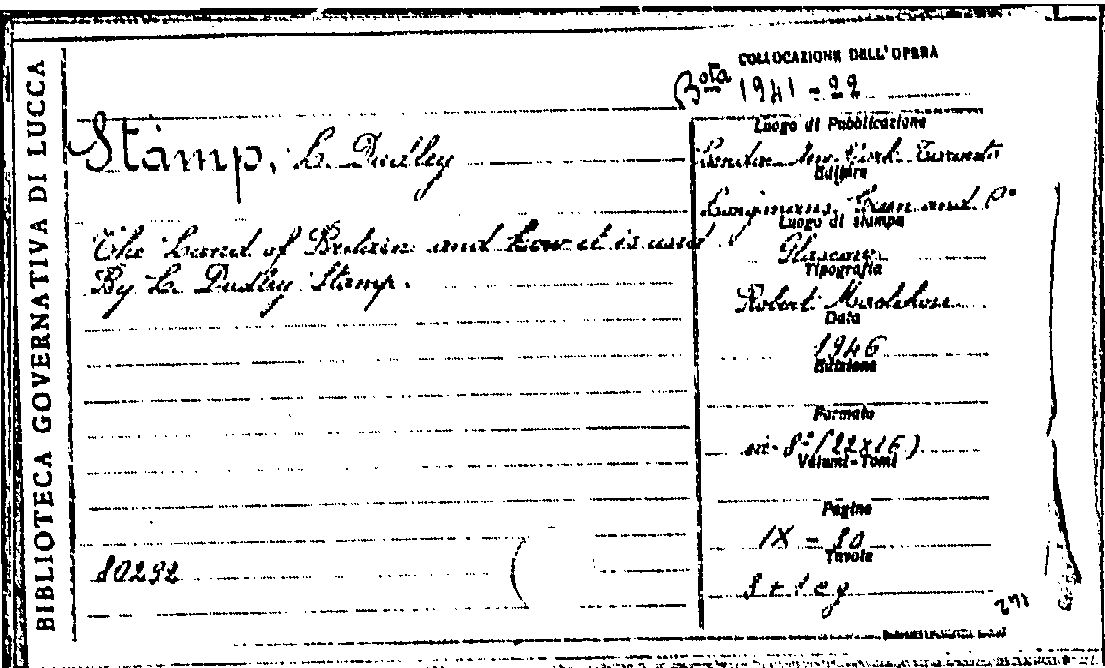 BIBLIOTECA GOVERNATIVA DI LUCCA
COLLOCAZIONE DELL'OPERA
Bta 1941-22
Stamp, L. Dudley
The Land of Britain and how it is used.
By L. Dudley Stamp.
80292
Luogo di Pubblicazione
London New York Toronto
Editore
Longmans, Green and Co
Luogo di stampa
Glascow
Tipografia
Robert
Data
1946
Edizione
Formato
in-8° (22x15)
Volumi-Tomi
Pagine
IX - 80
Tavole
8 +
291